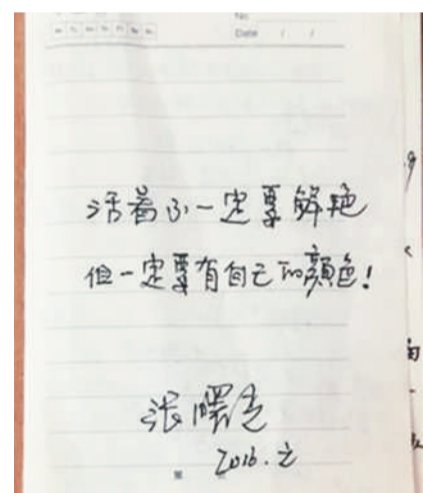 No.
Date / /
活着不一定要鲜艳
但一定要有自己的颜色!
张曙光
2016.立